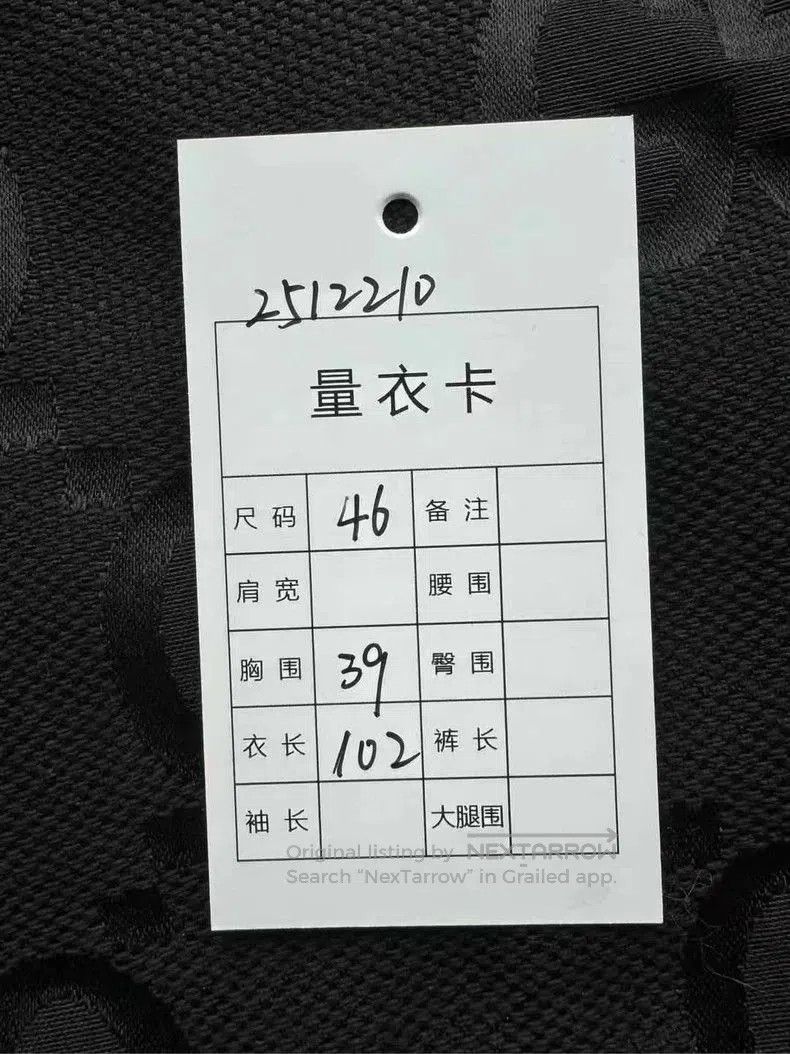 2512210
量衣卡
尺码 46 备注
肩宽 腰围
胸围 39 臀围
衣长 102 裤长
袖长 大腿围
Original listing by NEXTARROW
Search “NexTarrow” in Grailed app.